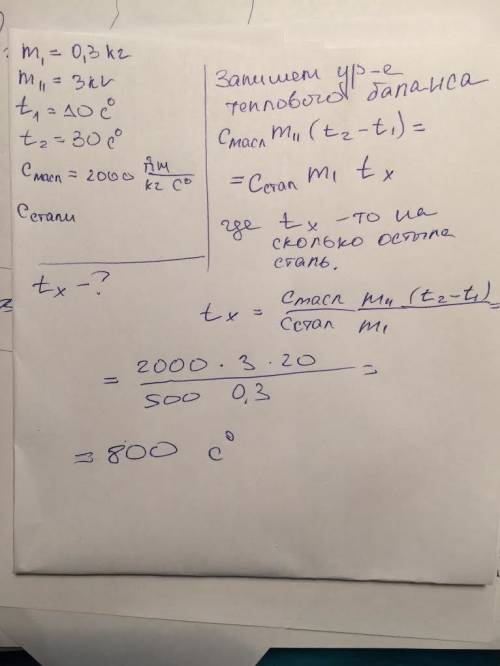 m₁ = 0,3 кг
m₁₁ = 3 кг
t₁ = 10 c°
t₂ = 30 c°
Cмасл = 2000 Дж/кг C°
Cстали
tx - ?
Запишем ур-е
теплового баланса
Cмасл m₁₁ (t₂-t₁) =
= Cстал m₁ tx
где tx - то на
сколько остыла
сталь.
tx = Cмасл m₁₁ (t₂-t₁) / Cстал m₁ =
= 2000 · 3 · 20 / 500 0,3 =
= 800 c°